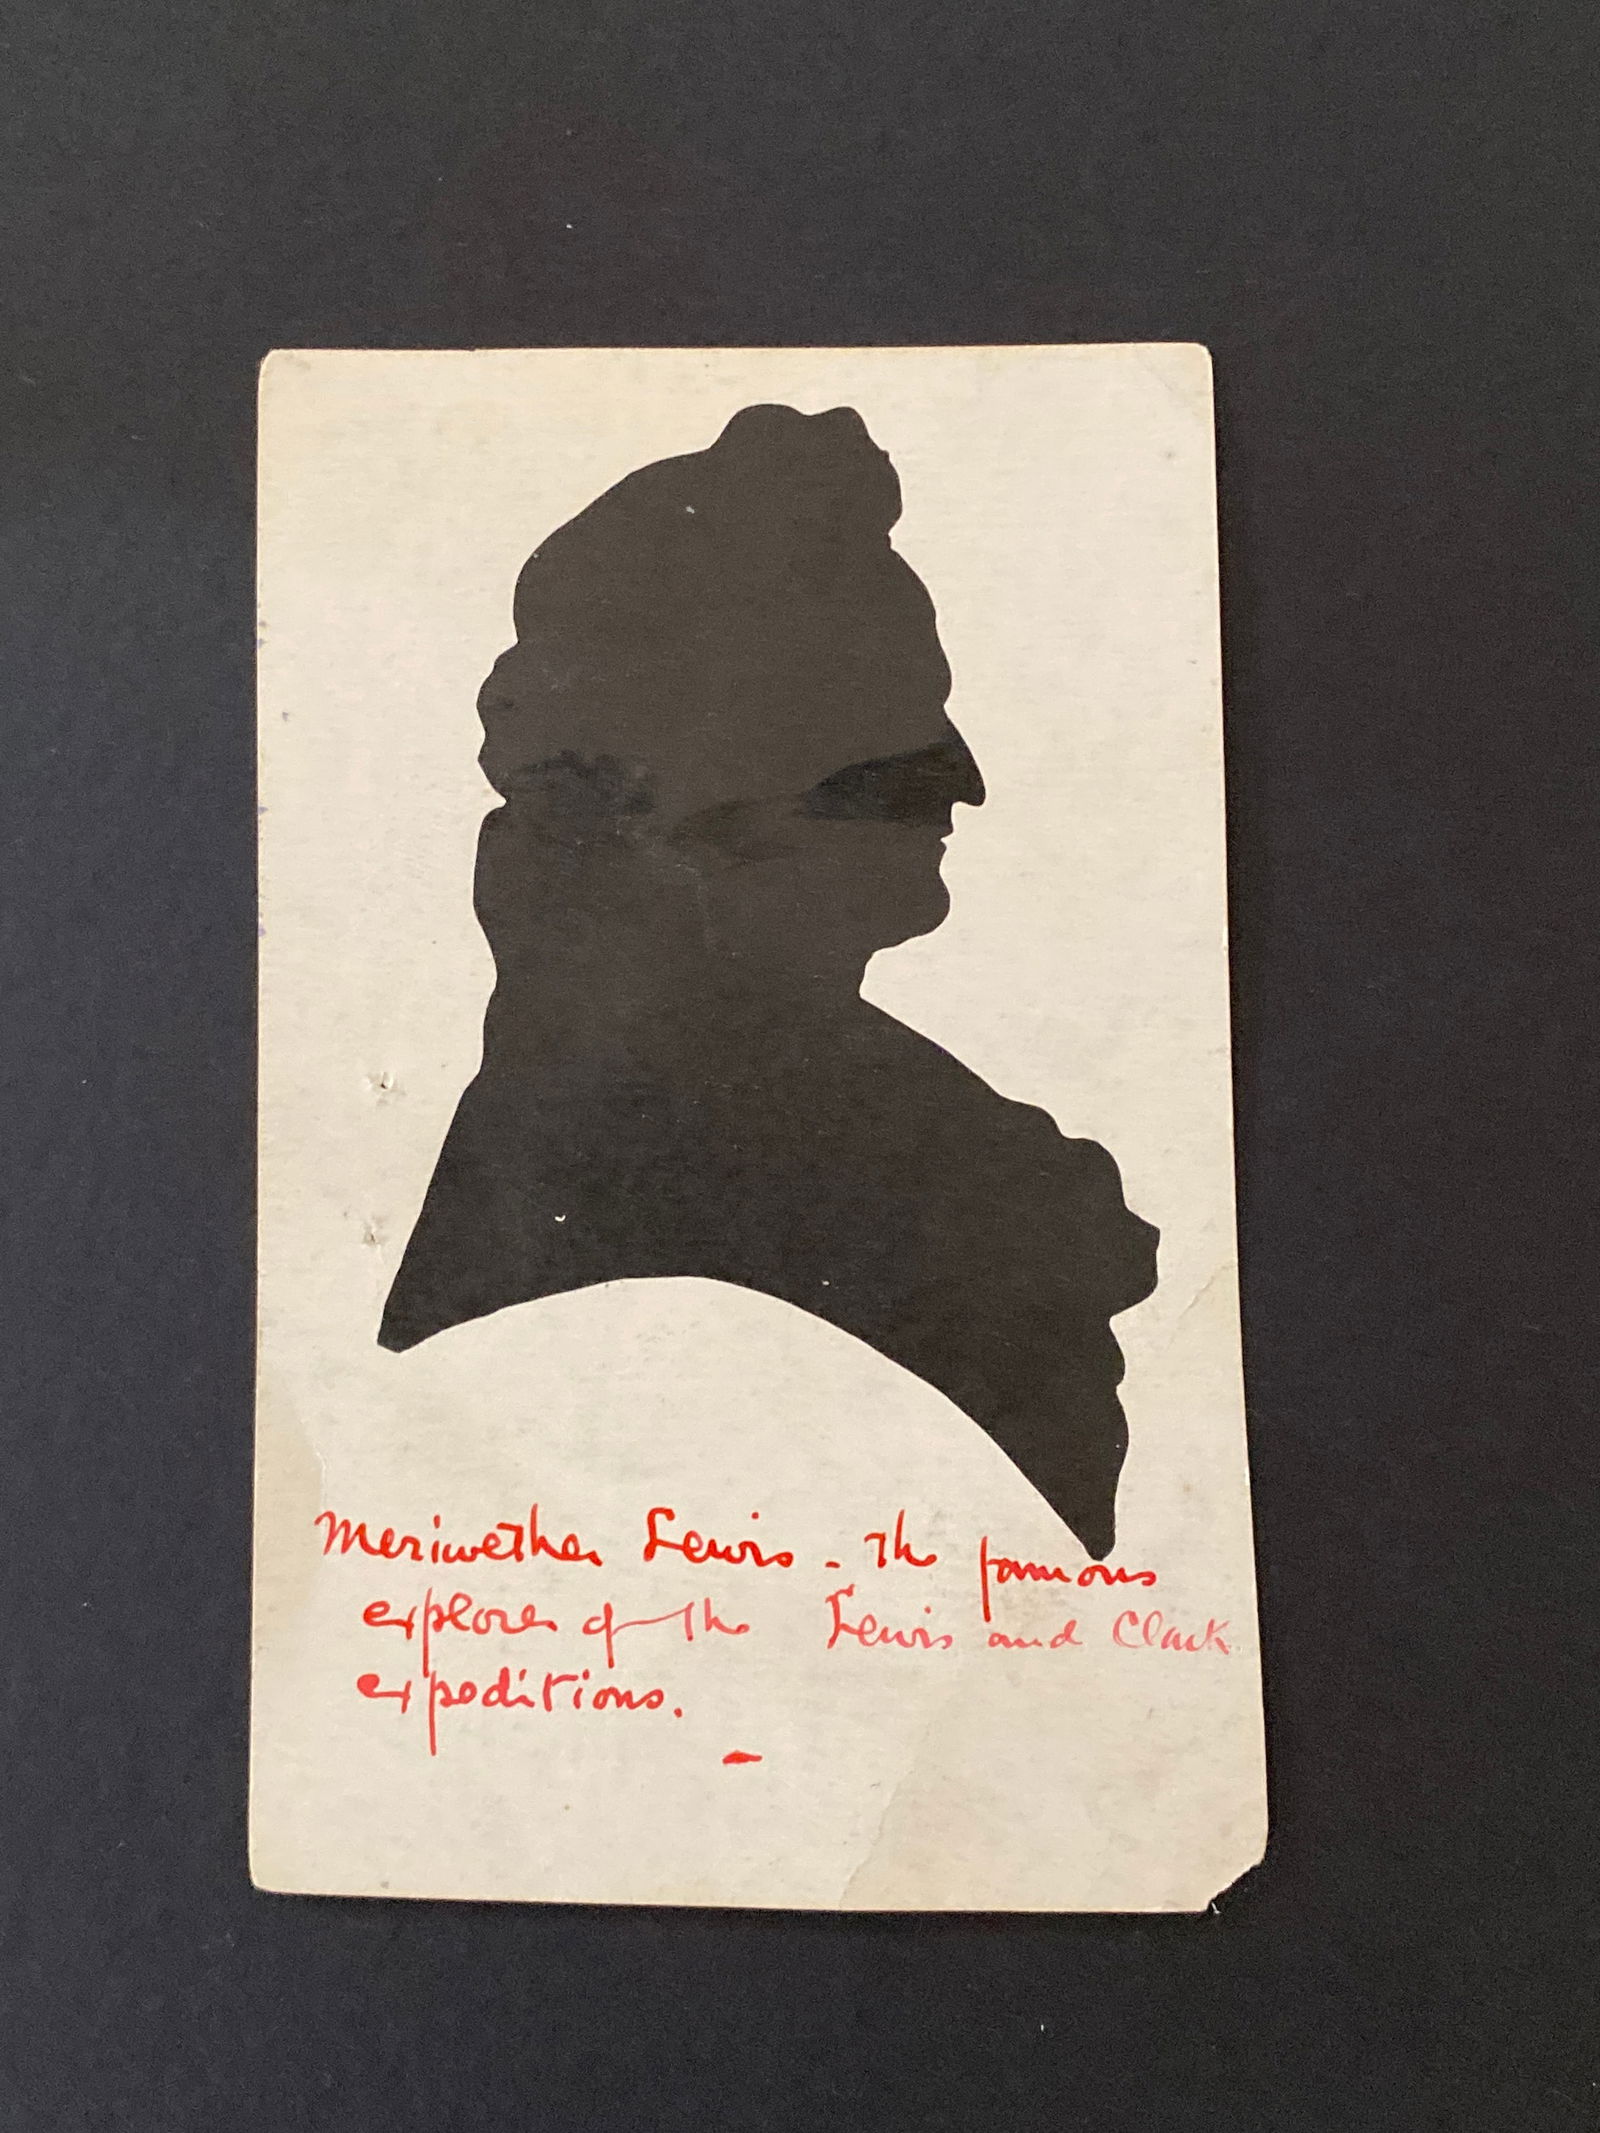 Meriwether Lewis - The famous
explorer of the Lewis and Clark
expeditions.